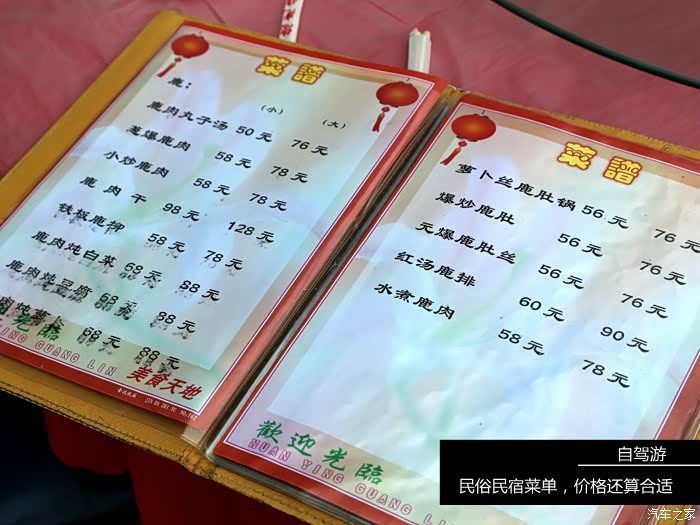 菜譜
鹿：
（小）（大）
鹿肉丸子汤 50元 76元
葱爆鹿肉 58元 78元
小炒鹿肉 58元 78元
鹿肉干 98元 128元
铁板鹿柙 58元 78元
鹿肉炖白菜 68元 88元
鹿肉炖豆腐 68元 88元
68元 88元
光臨
YING GUANG LIN
美食天地
菜譜
萝卜丝鹿肚锅 56元 76元
爆炒鹿肚 56元 76元
元爆鹿肚丝 56元 76元
红汤鹿排 60元 90元
水煮鹿肉 58元 78元
歡迎光臨
HUAN YING GUANG LIN
自驾游
民俗民宿菜单，价格还算合适
汽车之家